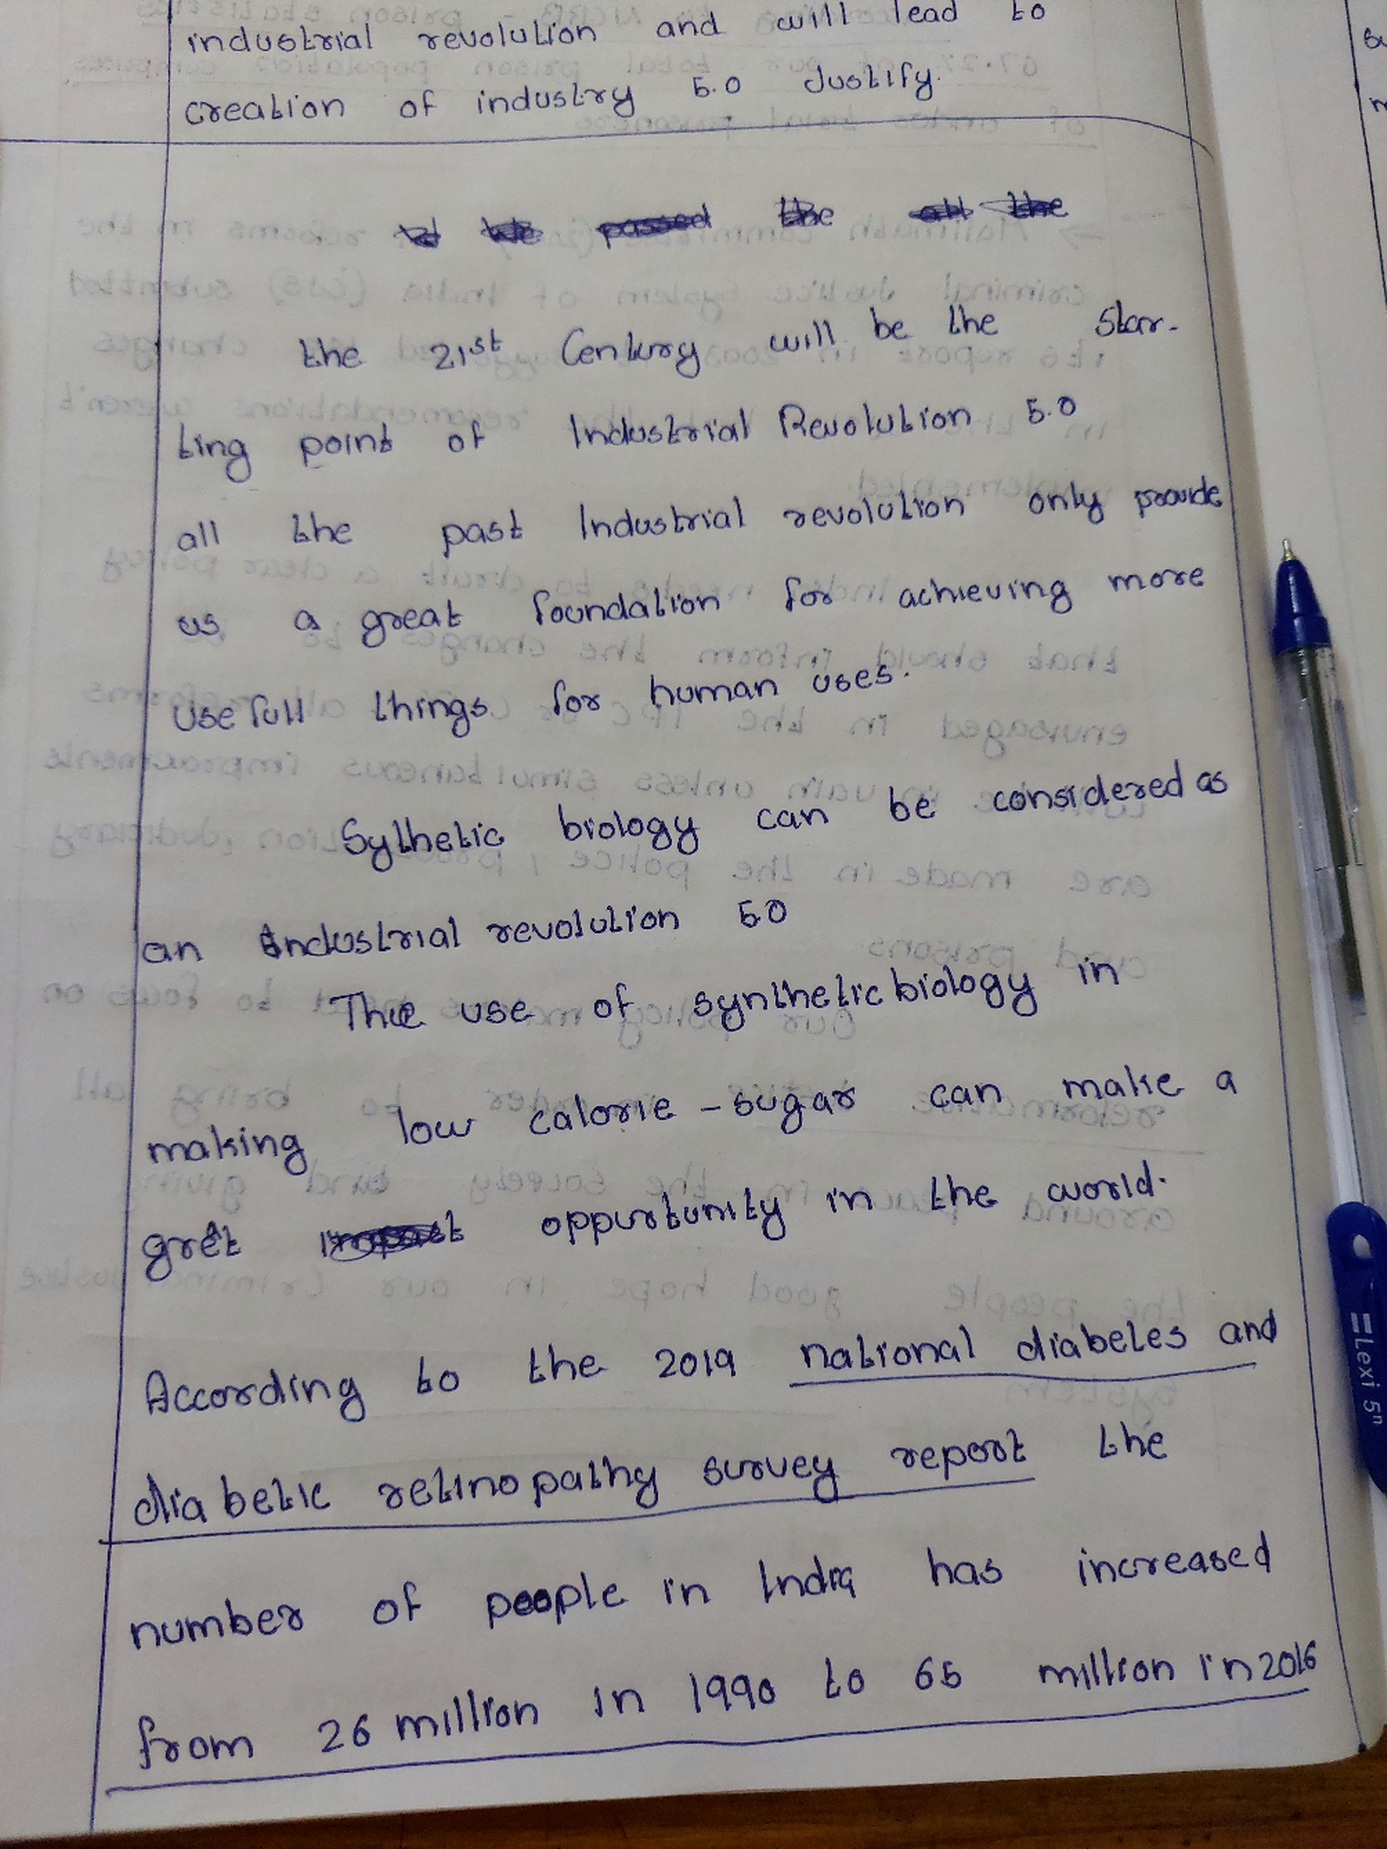 industrial revolution and will lead to
creation of industry 5.0 Justify.
the 21st Century will be the Star-
ting point of Industrial Revolution 5.0
all the past Industrial revolution only provide
us a great foundation for achieving more
usefull things for human uses.
Sylhetic biology can be considered as
an industrial revolution 5.0
The use of synthetic biology in
making low calorie - sugar can make a
gret oppurtunity in the world.
According to the 2019 national diabetes and
diabetic retinopathy survey report the
number of people in India has increased
from 26 million in 1990 to 65 million in 2016
Lexi 5n